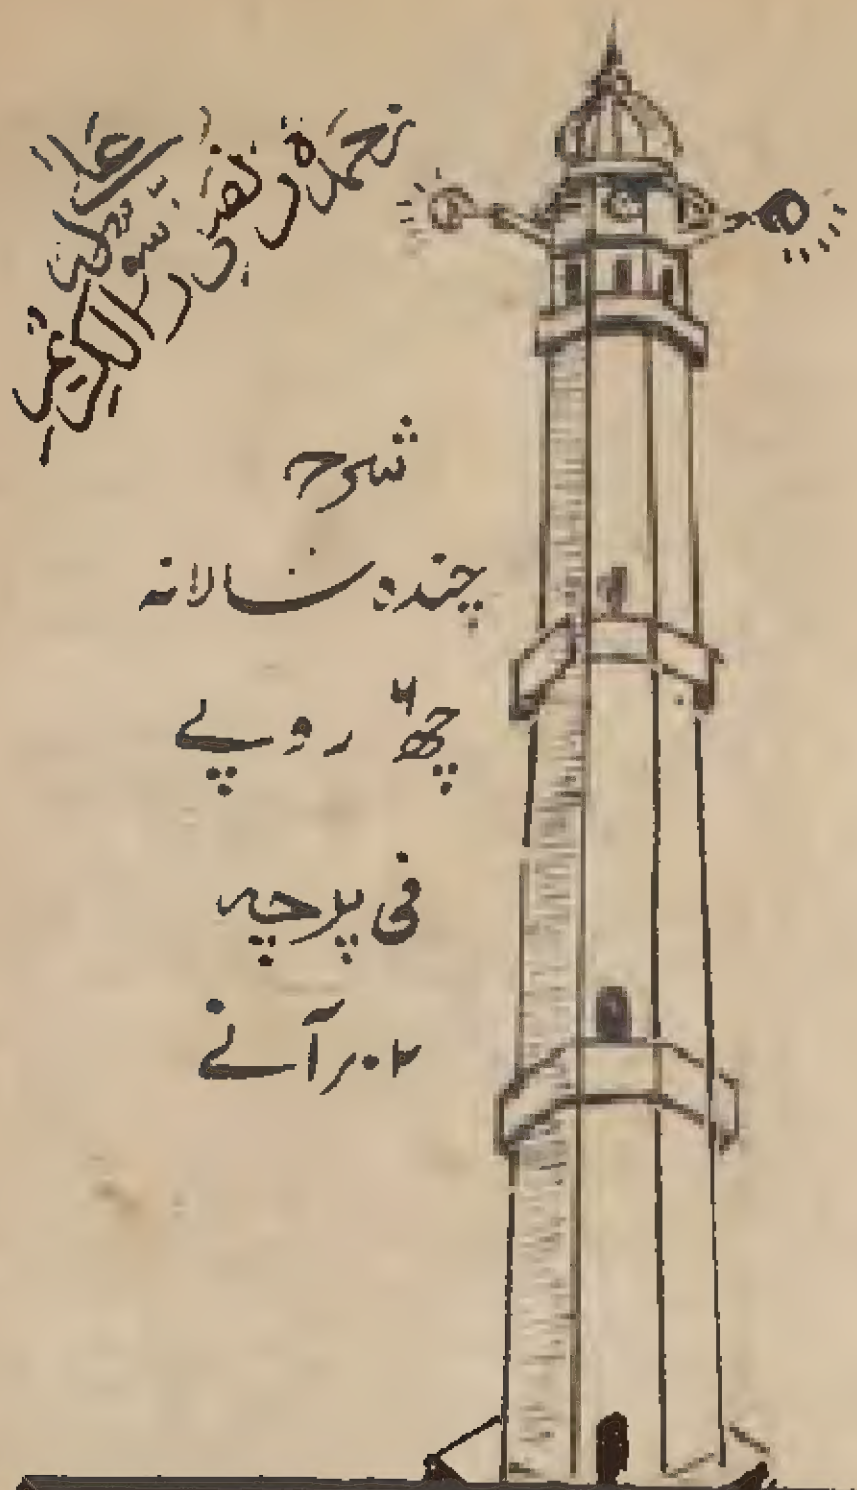 نحمدہ ونصلی علیٰ رسولہ الکریم
شرح
چندہ سالانہ
چھ ۶ روپے
فی پرچہ
۲؍ آنے